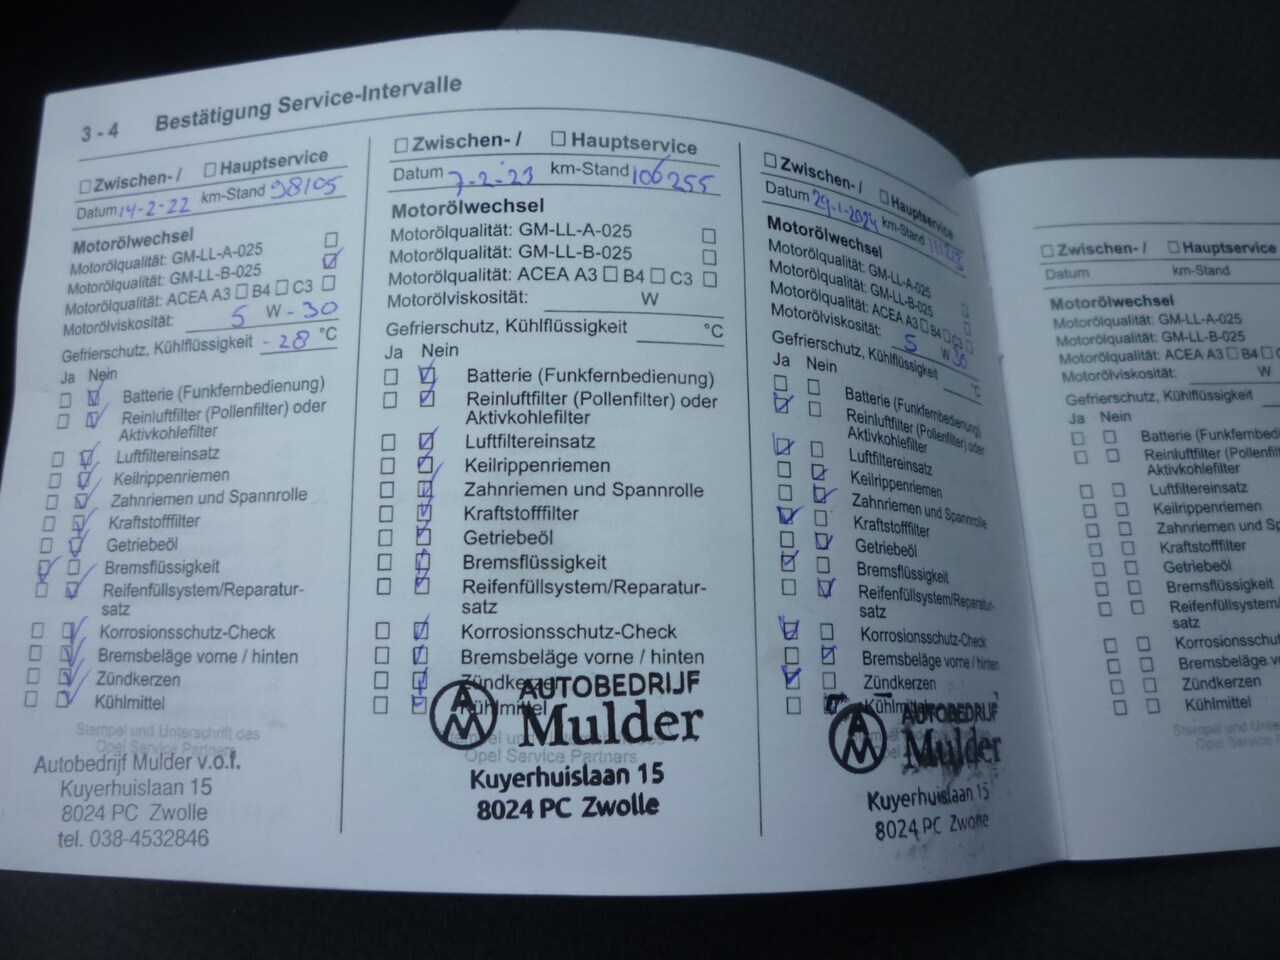 3 - 4 Bestätigung Service-Intervalle
Zwischen- / Hauptservice
Datum 14-2-22 km-Stand 98105
Motorölwechsel
Motorölqualität: GM-LL-A-025
Motorölqualität: GM-LL-B-025
Motorölqualität: ACEA A3 B4 C3
Motorölviskosität: 5 W - 30
Gefrierschutz, Kühlflüssigkeit - 28 °C
Ja Nein
Batterie (Funkfernbedienung)
Reinluftfilter (Pollenfilter) oder
Aktivkohlefilter
Luftfiltereinsatz
Keilrippenriemen
Zahnriemen und Spannrolle
Kraftstofffilter
Getriebeöl
Bremsflüssigkeit
Reifenfüllsystem/Reparatur-
satz
Korrosionsschutz-Check
Bremsbeläge vorne / hinten
Zündkerzen
Kühlmittel
Stempel und Unterschrift des
Opel Service Partners
Autobedrijf Mulder v.o.f.
Kuyerhuislaan 15
8024 PC Zwolle
tel. 038-4532846
Zwischen- / Hauptservice
Datum 7-2-23 km-Stand 106255
Motorölwechsel
Motorölqualität: GM-LL-A-025
Motorölqualität: GM-LL-B-025
Motorölqualität: ACEA A3 B4 C3
Motorölviskosität: W
Gefrierschutz, Kühlflüssigkeit °C
Ja Nein
Batterie (Funkfernbedienung)
Reinluftfilter (Pollenfilter) oder
Aktivkohlefilter
Luftfiltereinsatz
Keilrippenriemen
Zahnriemen und Spannrolle
Kraftstofffilter
Getriebeöl
Bremsflüssigkeit
Reifenfüllsystem/Reparatur-
satz
Korrosionsschutz-Check
Bremsbeläge vorne / hinten
Zündkerzen
Kühlmittel
Opel Service Partners
AM AUTOBEDRIJF
Mulder
Kuyerhuislaan 15
8024 PC Zwolle
Zwischen- / Hauptservice
Datum 29-1-2024 km-Stand
Motorölwechsel
Motorölqualität: GM-LL-A-025
Motorölqualität: GM-LL-B-025
Motorölqualität: ACEA A3 B4 C3
Motorölviskosität: 5 W 30
Gefrierschutz, Kühlflüssigkeit °C
Ja Nein
Batterie (Funkfernbedienung)
Reinluftfilter (Pollenfilter) oder
Aktivkohlefilter
Luftfiltereinsatz
Keilrippenriemen
Zahnriemen und Spannrolle
Kraftstofffilter
Getriebeöl
Bremsflüssigkeit
Reifenfüllsystem/Reparatur-
satz
Korrosionsschutz-Check
Bremsbeläge vorne / hinten
Zündkerzen
Kühlmittel
AM AUTOBEDRIJF
Mulder
Kuyerhuislaan 15
8024 PC Zwolle
Zwischen- / Hauptservice
Datum km-Stand
Motorölwechsel
Motorölqualität: GM-LL-A-025
Motorölqualität: GM-LL-B-025
Motorölqualität: ACEA A3 B4
Motorölviskosität: W
Gefrierschutz, Kühlflüssigkeit
Ja Nein
Batterie (Funkfernbed
Reinluftfilter (Pollenfil
Aktivkohlefilter
Luftfiltereinsatz
Keilrippenriemen
Zahnriemen und Sp
Kraftstofffilter
Getriebeöl
Bremsflüssigkeit
Reifenfüllsystem/
satz
Korrosionsschu
Bremsbeläge vo
Zündkerzen
Kühlmittel
Stempel und Unters
Opel Service Par